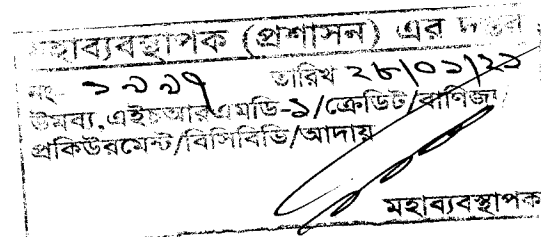 মহাব্যবস্থাপক (প্রশাসন) এর দপ্তর
নং- ১৯৯৭ তারিখ ২৮/০১/২১
উমব্য,এইচআরএমডি-১/ক্রেডিট/বাণিজ্য/
প্রকিউরমেন্ট/বিসিবিডি/আদায়
মহাব্যবস্থাপক